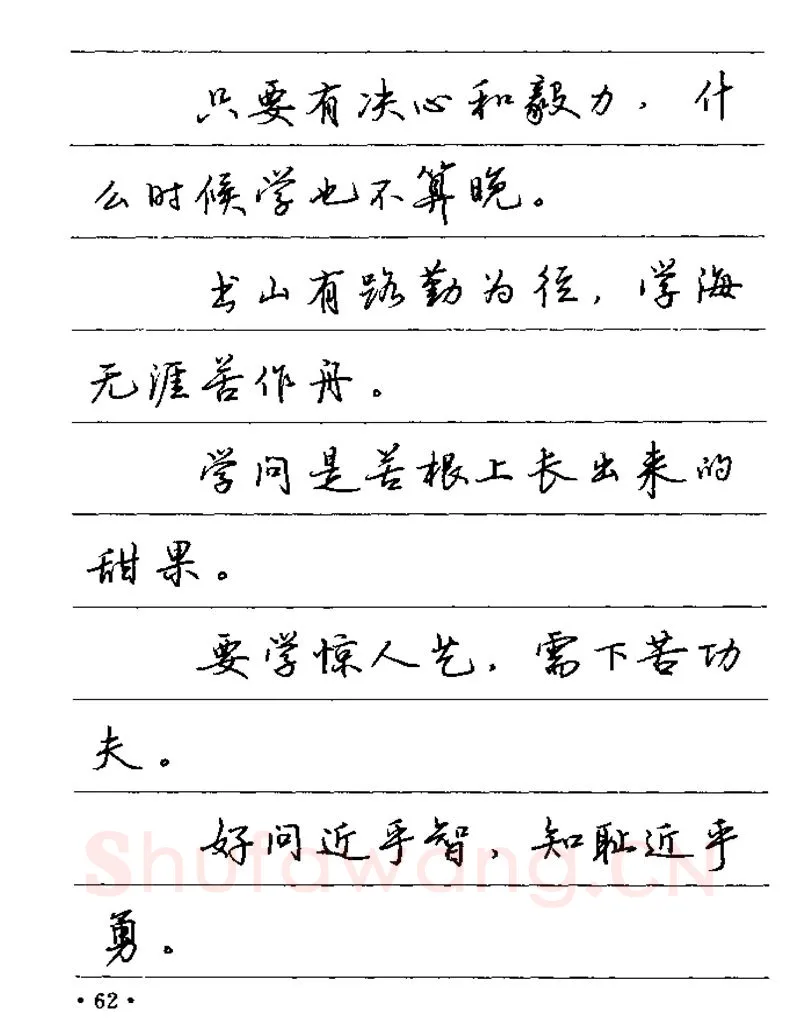 只要有决心和毅力，什
么时候学也不算晚。
书山有路勤为径，学海
无涯苦作舟。
学问是苦根上长出来的
甜果。
要学惊人艺，需下苦功
夫。
好问近乎智，知耻近乎
勇。
Shufawang.CN
·62·